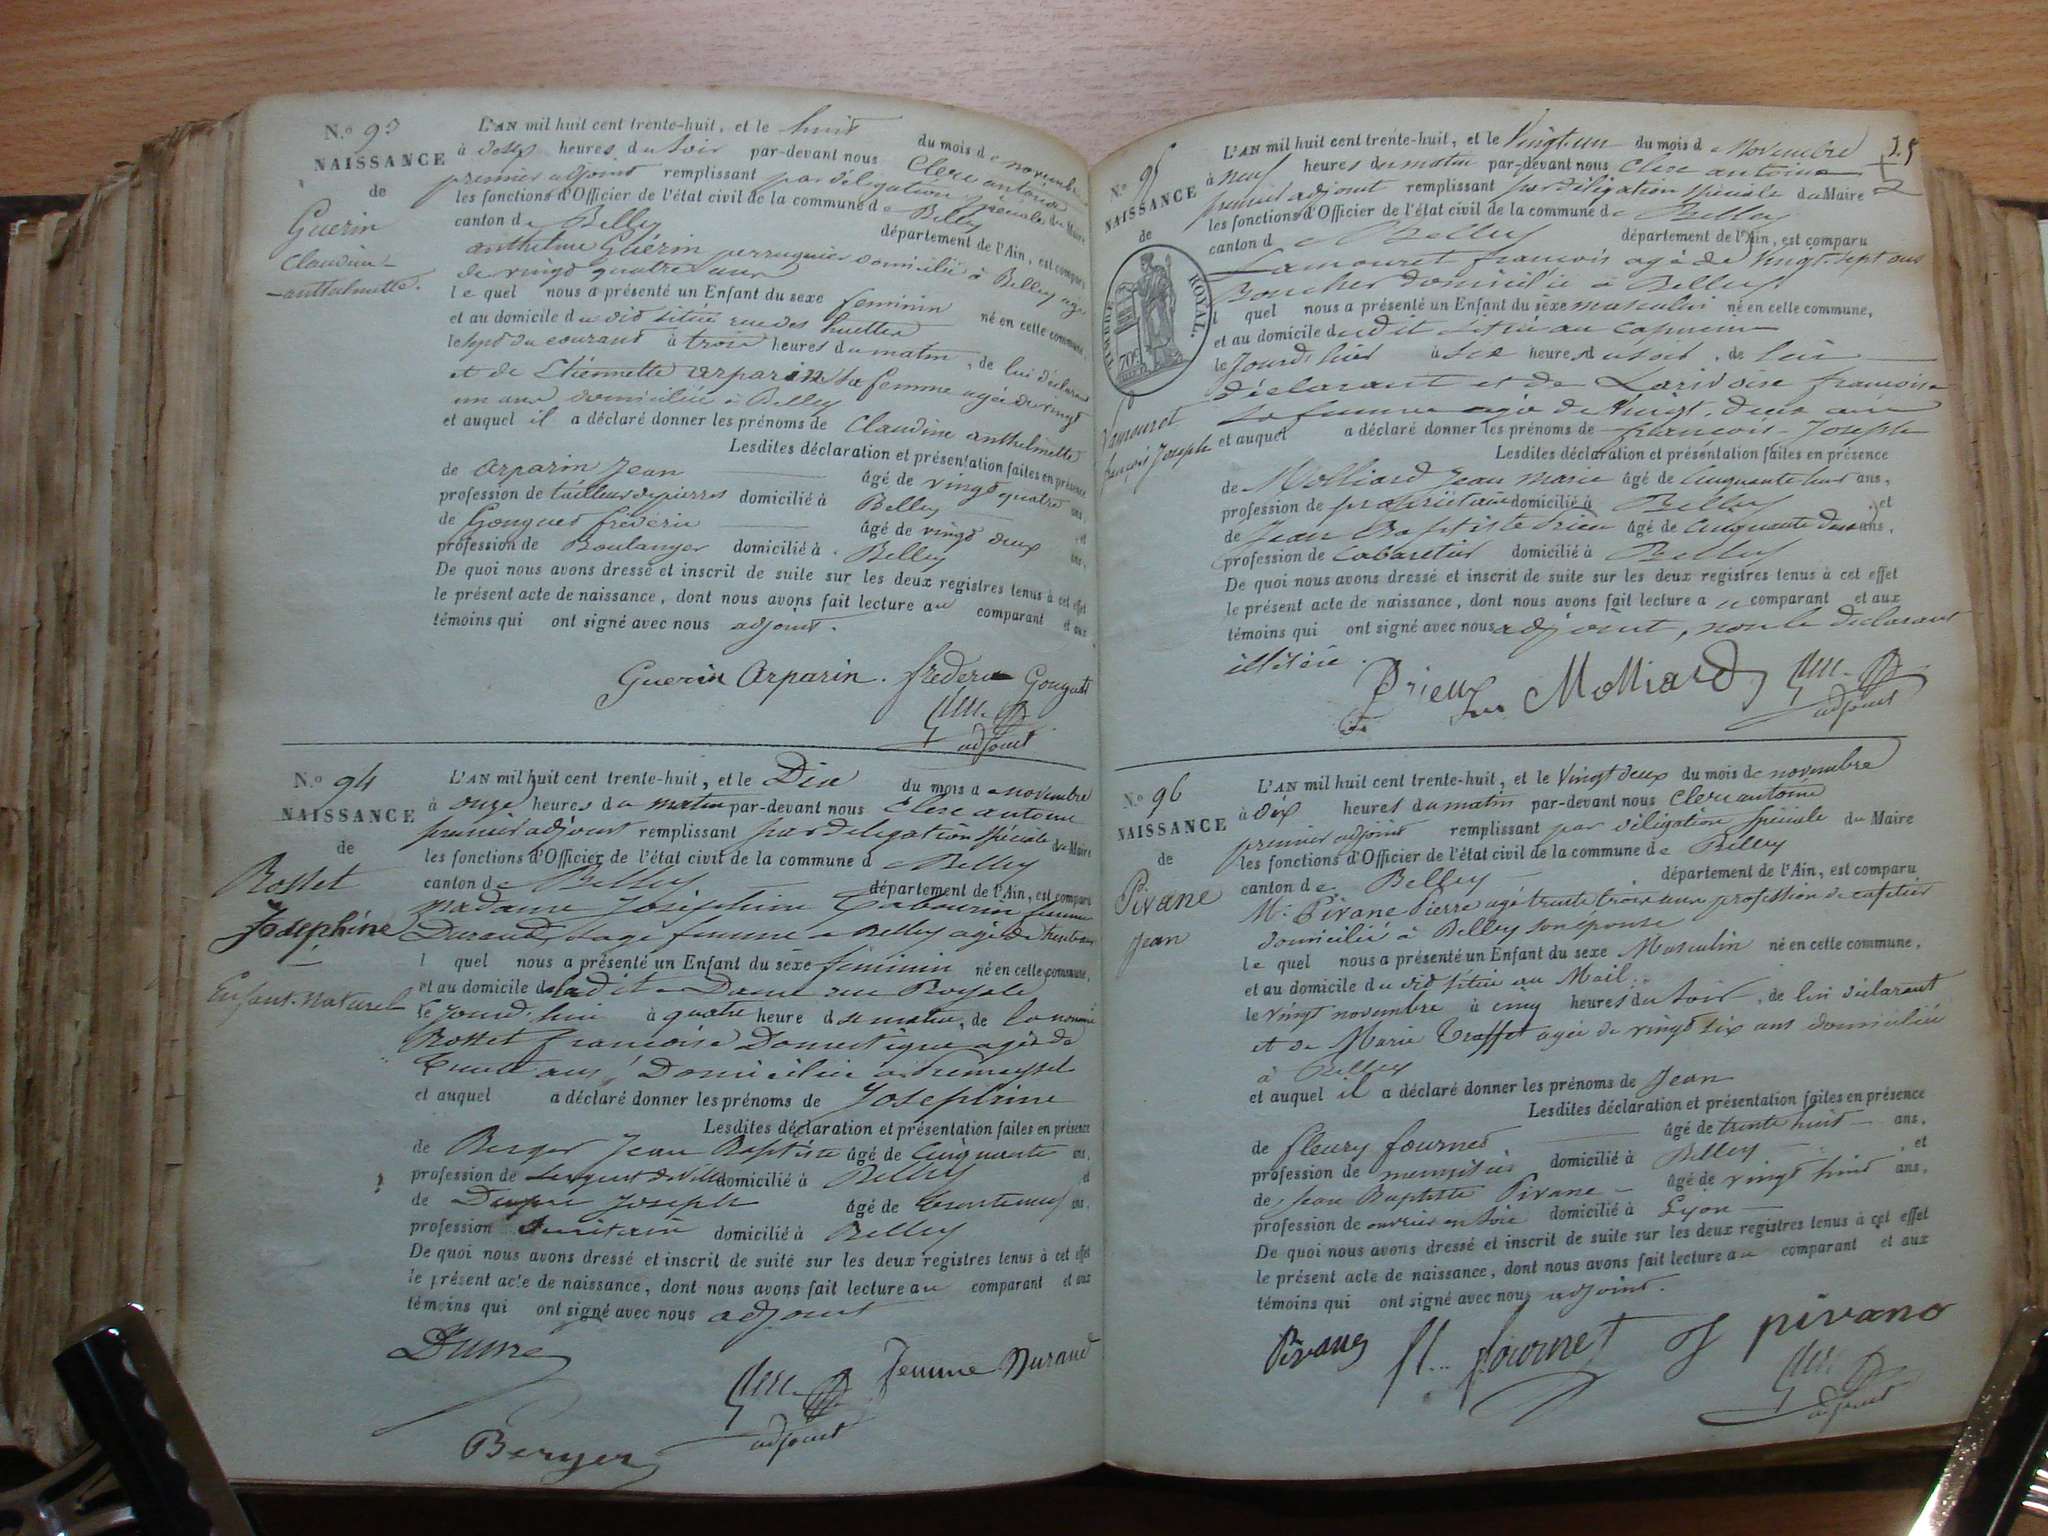 N.º 93
NAISSANCE
de
Guerin
Claudine
anthelmette.
L'AN mil huit cent trente-huit, et le huit du mois de novembre
à heures du soir par-devant nous Clerc antoine
premier adjoint remplissant par délégation spéciale du Maire
les fonctions d'Officier de l'état civil de la commune de Belley
canton de Belley département de l'Ain, est comparu
anthelme Guérin perruquier domicilié à Belley agé
de vingt quatre ans
le quel nous a présenté un Enfant du sexe feminin né en cette commune,
et au domicile du dit situé rue des
le sept du courant à trois heures du matin, de lui déclarant
et de Etiennette arparin sa femme agée de vingt
un ans domiciliée à Belley
et auquel il a déclaré donner les prénoms de Claudine anthelmette
Lesdites déclaration et présentation faites en présence
de Arparin Jean âgé de vingt quatre ans,
profession de tailleur de pierres domicilié à Belley et
de Gonguet fréderic âgé de vingt deux ans,
profession de Boulanger domicilié à Belley
De quoi nous avons dressé et inscrit de suite sur les deux registres tenus à cet effet
le présent acte de naissance, dont nous avons fait lecture au comparant et aux
témoins qui ont signé avec nous adjoint.
Guerin Arparin. frederic Gonguet
Clerc
adjoint
N.º 94
NAISSANCE
de
Rosset
Josephine
Enfant Naturel
L'AN mil huit cent trente-huit, et le Dix du mois de novembre
à onze heures du matin par-devant nous Clerc antoine
premier adjoint remplissant par délégation spéciale du Maire
les fonctions d'Officier de l'état civil de la commune de Belley
canton de Belley département de l'Ain, est comparu
Madame Joséphine femme
Durand, sage femme a Belley agée de
l quel nous a présenté un Enfant du sexe feminin né en cette commune,
et au domicile de ladite Dame rue Royale
le jourd'hui à quatre heure du matin, de la nommée
Rosset françoise Domestique agée de
Trente ans, Domiciliée a
et auquel a déclaré donner les prénoms de Josephine
Lesdites déclaration et présentation faites en présence
de Berger Jean Baptiste âgé de Cinquante ans,
profession de Sergent de Ville domicilié à Belley et
de Joseph âgé de trente neuf ans,
profession domicilié à Belley
De quoi nous avons dressé et inscrit de suite sur les deux registres tenus à cet effet
le présent acte de naissance, dont nous avons fait lecture au comparant et aux
témoins qui ont signé avec nous adjoint
Clerc femme Durand
adjoint
Berger
N.º 95
NAISSANCE
de
TIMBRE ROYAL.
70c
françois Joseph
L'AN mil huit cent trente-huit, et le Vingt un du mois de Novembre
à neuf heures du matin par-devant nous Clerc antoine
premier adjoint remplissant par délégation spéciale du Maire
les fonctions d'Officier de l'état civil de la commune de Belley
canton de Belley département de l'Ain, est comparu
Lamouret francois agé de Vingt-sept ans
Boucher domicilié à Belley
l quel nous a présenté un Enfant du sexe masculin né en cette commune,
et au domicile du dit situé au capucin
le Jourd'hier à six heures du soir, de lui
déclarant et de Larivoire françoise
sa femme agée de Vingt-deux ans
et auquel a déclaré donner les prénoms de françois-Joseph
Lesdites déclaration et présentation faites en présence
de Molliard Jean Marie âgé de Cinquante huit ans,
profession de propriétaire domicilié à Belley et
de Jean Baptiste Prieu âgé de Cinquante deux ans,
profession de Cabaretier domicilié à Belley
De quoi nous avons dressé et inscrit de suite sur les deux registres tenus à cet effet
le présent acte de naissance, dont nous avons fait lecture au comparant et aux
témoins qui ont signé avec nous adjoint, non le déclarant
illitéré.
Prieux Molliard Clerc
adjoint
N.º 96
NAISSANCE
de
Pivane
Jean
L'AN mil huit cent trente-huit, et le Vingt deux du mois de novembre
à dix heures du matin par-devant nous Clerc antoine
premier adjoint remplissant par déligation spéciale du Maire
les fonctions d'Officier de l'état civil de la commune de Belley
canton de Belley département de l'Ain, est comparu
Mr. Pivane Pierre agé trente trois ans profession de cafetier
domicilié à Belley son épouse
le quel nous a présenté un Enfant du sexe Masculin né en cette commune,
et au domicile du dit situé au Mail
le vingt novembre à cinq heures du soir, de lui déclarant
et de Marie Traffet agée de vingt six ans domiciliée
à Belley
et auquel il a déclaré donner les prénoms de Jean
Lesdites déclaration et présentation faites en présence
de fleury fournet âgé de trente huit ans,
profession de menuisier domicilié à Belley et
de Jean Baptiste Pivane âgé de vingt huit ans,
profession de ouvrier en soie domicilié à Lyon
De quoi nous avons dressé et inscrit de suite sur les deux registres tenus à cet effet
le présent acte de naissance, dont nous avons fait lecture au comparant et aux
témoins qui ont signé avec nous adjoint.
Pivane fl.. fournet pivano
Clerc
adjoint